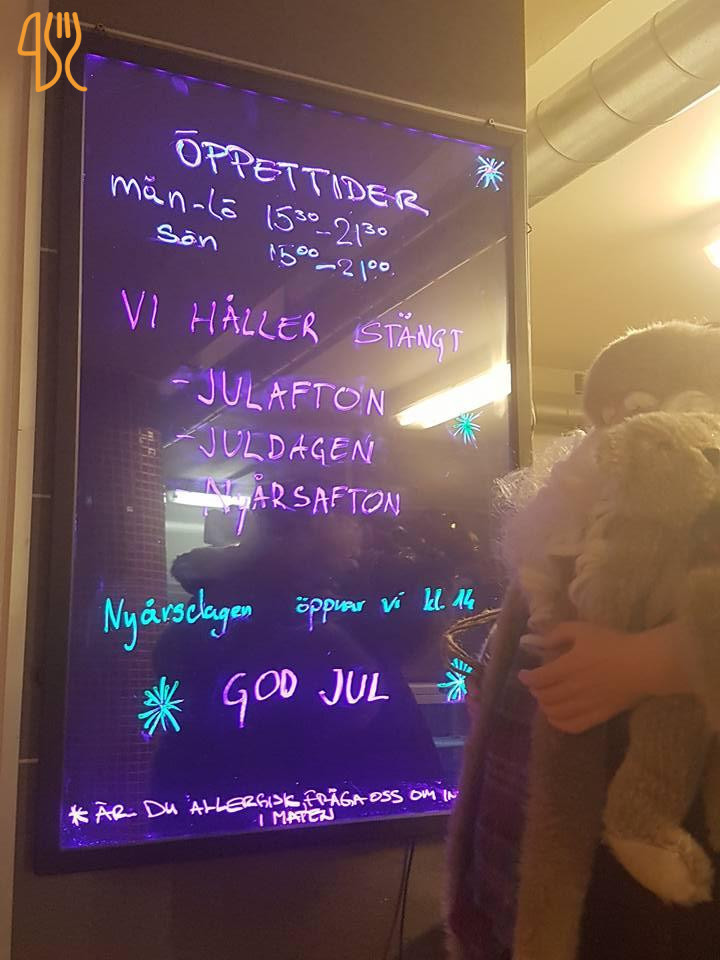 ÖPPETTIDER
mån-lö 15³⁰-21³⁰
sön 15⁰⁰-21⁰⁰
VI HÅLLER STÄNGT
- JULAFTON
- JULDAGEN
- NYÅRSAFTON
Nyårsdagen öppnar vi kl. 14
GOD JUL
* ÄR DU ALLERGISK, FRÅGA OSS OM
I MATEN